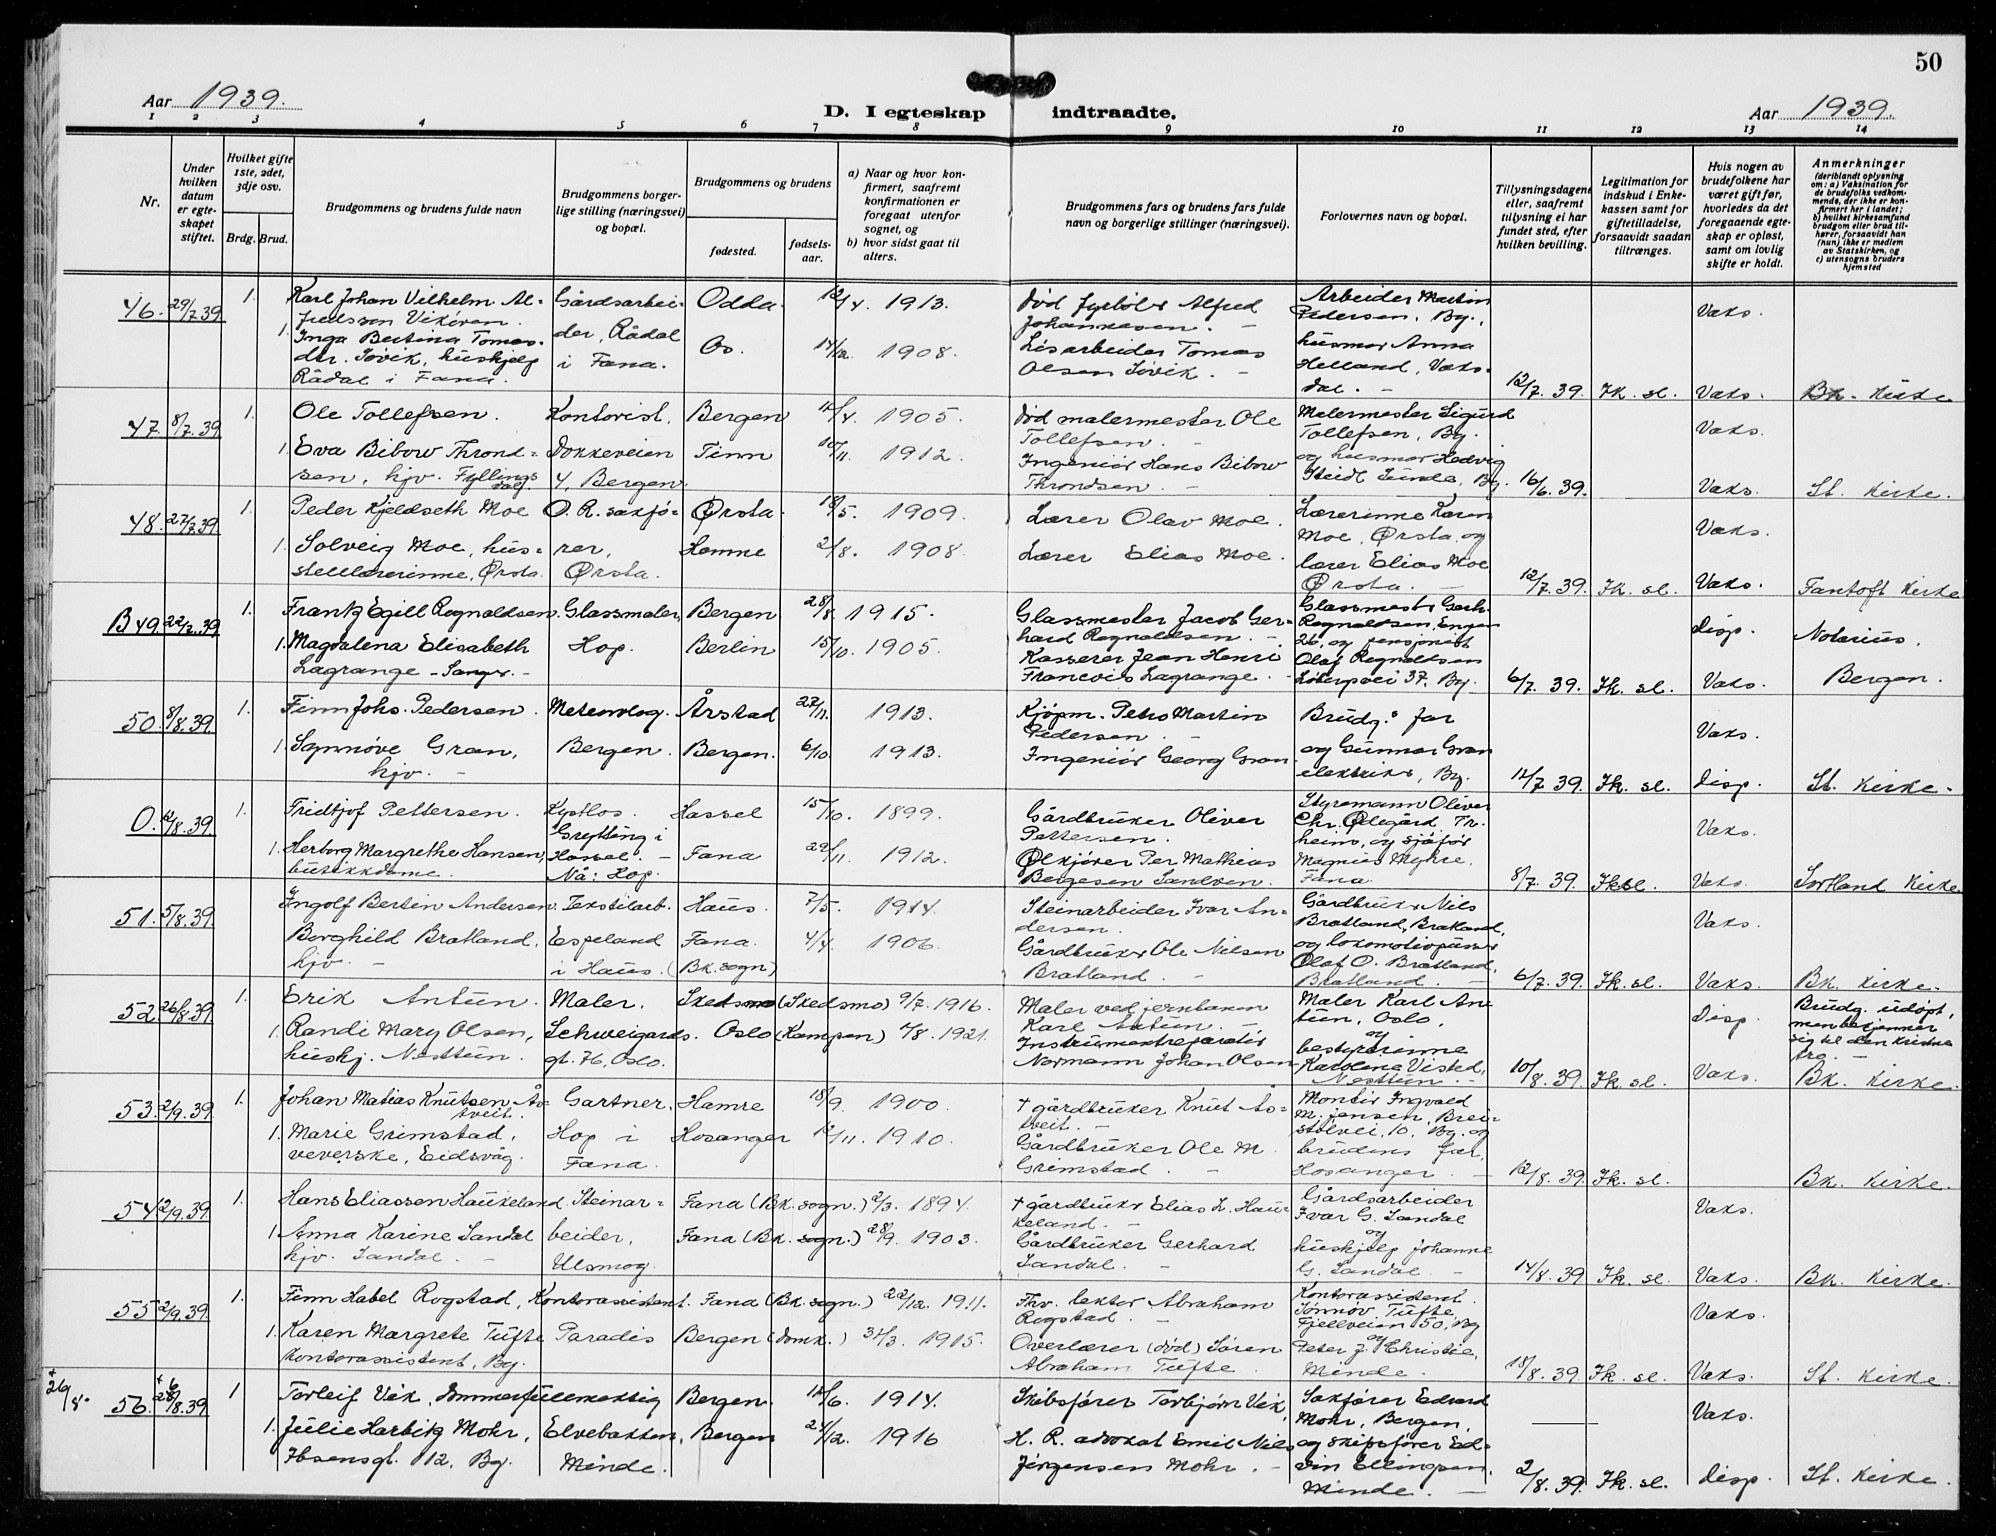 50
Aar 1939.
D. I egteskap indtraadte.
Aar 1939.
1 2 3 4 5 6 7 8 9 10 11 12 13 14
Nr.
Under hvilken datum er egteskapet stiftet.
Hvilket gifte 1ste, 2det, 3dje osv.
Brdg. Brud.
Brudgommens og brudens fulde navn
Brudgommens borgerlige stilling (næringsvei) og bopæl.
Brudgommens og brudens
fødested.
fødselsaar.
a) Naar og hvor konfirmert, saafremt konfirmationen er foregaat utenfor sognet, og
b) hvor sidst gaat til alters.
Brudgommens fars og brudens fars fulde navn og borgerlige stillinger (næringsvei).
Forlovernes navn og bopæl.
Tillysningsdagene eller, saafremt tillysning ei har fundet sted, efter hvilken bevilling.
Legitimation for indskud i Enkekassen samt for giftetilladelse, forsaavidt saadan tiltrænges.
Hvis nogen av brudefolkene har været gift før, hvorledes da det foregaaende egteskap er opløst, samt om lovlig skifte er holdt.
Anmerkninger
(deriblandt oplysning om: a) Vaksination for de brudefolks vedkommende, der ikke er konfirmert her i landet; b) hvilket kirkesamfund brudgom eller brud tilhører, forsaavidt han (hun) ikke er medlem av Statskirken, og c) utensogns bruders hjemsted
46. 29/7 39 1. Karl Johan Vilhelm Al-
fredsson Vikøren.
1. Inga Bertina Tomas-
dtr. Søvik, huskjelp
Rådal i Fana.
Gårdsarbei-
der, Rådal
i Fana.
Odda. 12/4. 1913.
Os. 14/12. 1908.
død fyrbøt. Alfred
Johannessen. -
Løsarbeider Tomas
Olsen Søvik. -
Arbeider Martin
Pedersen, By.,
husmor Anna
Helland, Vaks-
dal. -
12/7. 39. Fk. sl.
Vaks.
Vaks. Bk. Kirke
47. 8/7. 39 1. Ole Tollefsen.
1. Eva Bibow Thrond-
sen, hjv. Fyllings
dal.
Kontorist.
Dokkeveien
4, Bergen.
Bergen 12/4. 1905.
Tinn 10/11. 1912.
død malermester Ole
Tollefsen. -
Ingeniør Hans Bibow
Throndsen. -
Malermester Sigurd
Tollefsen, By.
og husmor Hedvig
Steidl Sunda, By.
16/6. 39.
Vaks.
Vaks. St. Kirke.
48. 22/7. 39 1. Peder Kjeldseth Moe
1. Solveig Moe, hus-
stellærerinne, Ørsta.
O. R. sakfø-
rer,
Ørsta.
Ørsta. 18/5. 1909.
Hemne 2/8. 1908.
Lærer Olav Moe.
Lærer Elias Moe.
Lærerinne Karen
Moe, Ørsta, og
lærer Elias Moe
Ørsta. -
12/7. 39. Fk. sl.
Vaks.
Vaks. Fantoft Kirke
B 49. 22/2. 39 1. Frantz Egill Regnaldsen.
1. Magdalena Elisabeth
Lagrange
Glassmaler,
Hop.
Bergen 28/8. 1915.
Berlin 15/10. 1905.
Glassmester Jacob Ger-
hard Regnaldsen. -
Kasserer Jean Henri
Francois Lagrange. -
Glassmest. Gerh.
Regnaldsen, Engen
26, og pensjonist
Olaf Regnaldsen
37. By.
6/7. 39. Fk. sl.
Disp. Notarius.
Vaks. Bergen.
50. 8/8. 39. 1. Finn Johs. Pedersen.
1. Synnøve Gran,
hjv. -
Meteorolog.
Bergen.
Årstad 27/11. 1913.
Bergen. 6/10. 1913.
Kjøpm. Petro Martin
Pedersen. -
Ingeniør Georg Gran
Brudg.s far
og Gunnar Gran
elektrik., By.
12/7. 39. Fk. sl.
Vaks.
Disp. St. Kirke.
0. 12/8. 39. 1. Fridtjof Pettersen.
1. Herborg Margrethe Hansen,
butikkdame.
Kystlos.
Grytting i
Hassel. -
Nå: Hop.
Hassel 15/10. 1899.
Fana 29/11. 1912.
Gårdbruker Oliver
Pettersen. -
Ølkjører Per Mathias
Bergesen Sandven.
Styrmann Oliver
Chr. Ødegård, Tr.
heim, og sjåfør
Magnus Myhre,
Fana.
8/7. 39. Fk sl.
Vaks.
Vaks. Sortland Kirke
51. 5/8. 39. 1. Ingolf Bertin Andersen.
Borghild Bratland,
hjv. -
Tekstilarb.
Espeland
i Haus.
Haus. 7/5. 1914.
Fana. 4/4. 1906.
(Bk. sogn)
Steinarbeider Ivar An-
dersen.
Gårdbruk. Ole Nilsen
Bratland. -
Gårdbruk. Nils
Bratland, Bratland,
og lokomotivpusser
Olaf O. Bratland,
Bratland. -
6/7. 39. Fk. sl.
Vaks.
Vaks. Bk. Kirke.
52. 26/8. 39. 1. Erik Antun.
1. Randi Mary Olsen,
huskj. Nesttun.
Maler,
Schweigaards.
gt. 76, Oslo.
Skedsmo (Skedsmo) 9/7. 1916.
Oslo (Kampen) 4/8. 1921.
Maler ved jernbanen
Karl Antun. -
Instrumentreparatør
Normann Johan Olsen
Maler Karl An-
tun, Oslo,
og
bestyrerinne
Karolena Visted,
Nesttun. -
10/8. 39. Fk. sl.
Disp.
Vaks.
Brudg. udøpt,
men bekjenner
sig til den kristne
tro. -
Bk. Kirke.
53. 2/9. 39. 1. Johan Matias Knutsen Ås-
tveit.
1. Marie Grimstad,
veverske, Eidsvåg.
Gartner,
Hop i
Fana.
Hamre 18/9. 1900.
Hosanger 12/11. 1910.
† gårdbruker Knut Ås-
tveit. -
Gårdbruker Ole M.
Grimstad. -
Montør Ingvald
M. Jensen, Brei-
stølvei. 10, By. og
brudens far,
Hosanger. -
12/8. 39. Fk. sl.
Bk. Kirke.
54. 2/9. 39. 1. Hans Eliassen Haukeland.
1. Anna Karine Sandal
hjv. Sandal. -
Steinar-
beider,
Ulsmåg.
Fana (Bk. sogn.) 2/3. 1894.
Fana (Bk. sogn.) 28/9. 1903.
† gårdbruk. Elias L. Hau-
keland. -
Gårdbruker Gerhard
Sandal. -
Gårdsarbeider
Ivar G. Sandal
og
huskjelp Johanne
G. Sandal. -
14/8. 39. Fk. sl.
Vaks.
Vaks. Bk. Kirke.
55. 2/9. 39. 1. Finn Habel Rogstad,
1. Karen Margrete Tufte
kontorassistent, By.
Kontorassistent.
Paradis
Fana (Bk. sogn.) 22/12. 1911.
Bergen (Domk.) 31/3. 1915.
Fhv. lektor Abraham
Rogstad. -
Overlærer (død) Søren
Abraham Tufte.
Kontorassistent.
Sønnøv Tufte,
Fjellveien 50, By
og
Peter J. Christie,
Minde.
18/8. 39. Fk. sl.
Vaks.
Vaks. St. Kirke.
+ 26/8. 56. 28/8. 39. 1 Torleif Vik,
1. Julie Harbitz Mohr,
Ibsensgt. 112, By.
Elvebakken,
Minde.
Bergen. 12/6. 1914.
Bergen 24/12. 1916
Skibsfører Torbjørn Vik,
H. R. advokat Emil Nils
Jørgensen Mohr. -
Sakfører Edvard
Mohr, Bergen,
og skipsfører Ed-
vin Ellingsen,
Minde. -
2/8. 39. Fk. sl.
Vaks.
Disp. St. Kirke.